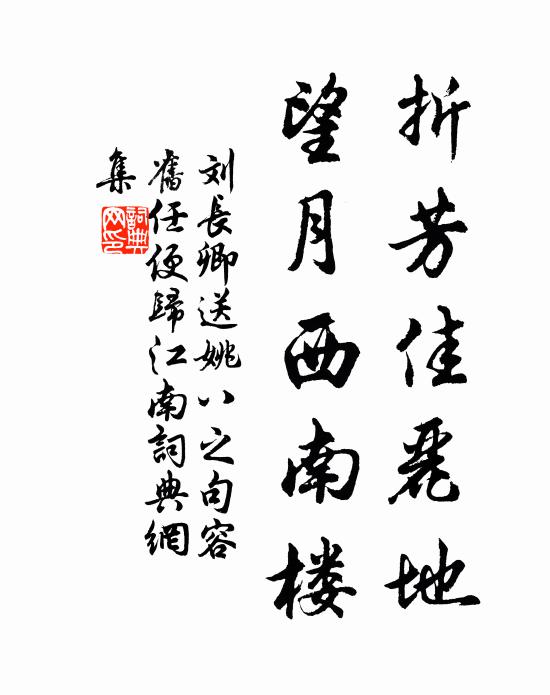 折芳佳麗地
望月西南楼
刘長卿送姚八之句容
舊任便歸江南詞典網
集
詞典
网印